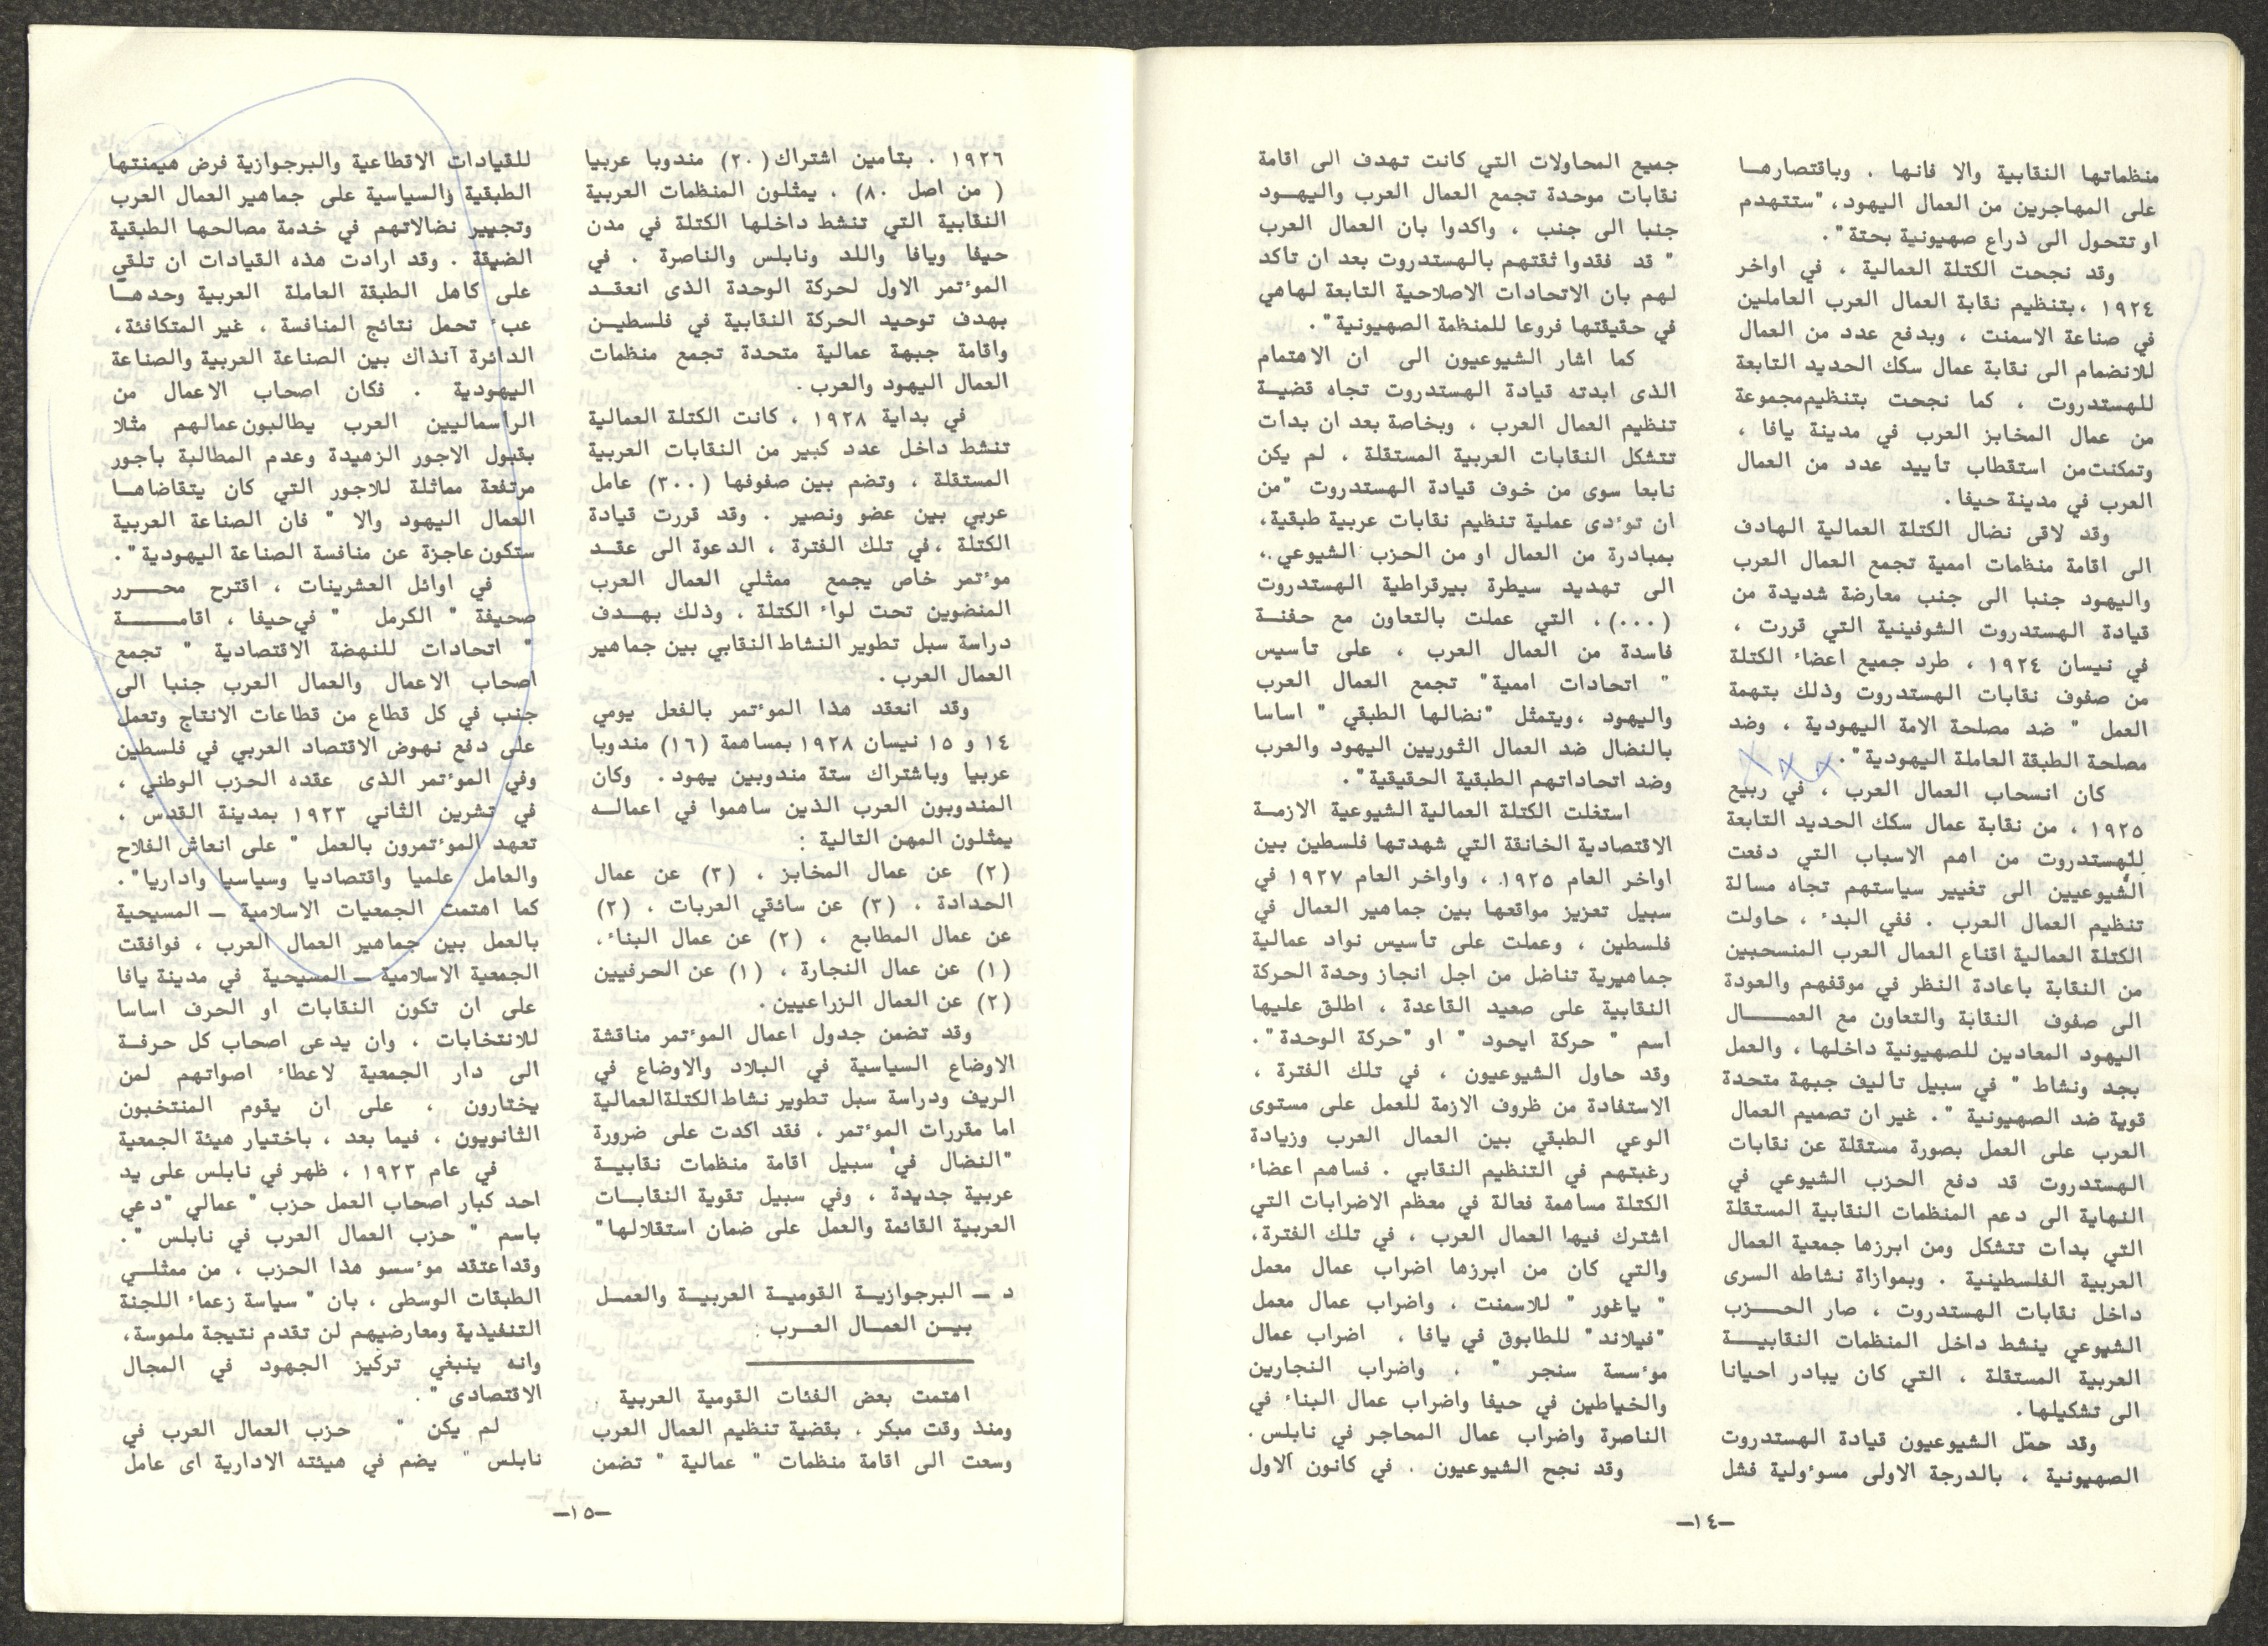 منظماتها النقابية والا فانها ، وباقتصارهـا
على المهاجرين من العمال اليهود، "ستتهدم
او تتحول الى ذراع صهيونية بحتة".
وقد نجحت الكتلة العمالية ، في اواخر
١٩٢٤ ،بتنظيم نقابة العمال العرب العاملين
في صناعة الاسمنت ، وبدفع عدد من العمال
للانضمام الى نقابة عمال سكك الحديد التابعة
للهستدروت ، كما نجحت بتنظيم مجموعة
من عمال المخابز العرب في مدينة يافا ،
وتمكنت من استقطاب تأييد عدد من العمال
العرب في مدينة حيفا.
وقد لاقى نضال الكتلة العمالية الهادف
الى اقامة منظمات اممية تجمع العمال العرب
واليهود جنبا الى جنب معارضة شديدة من
قيادة الهستدروت الشوفينية التي قررت ،
في نيسان ١٩٢٤ ، طرد جميع اعضاء الكتلة
من صفوف نقابات الهستدروت وذلك بتهمة
العمل " ضد مصلحة الامة اليهودية ، وضد
مصلحة الطبقة العاملة اليهودية".
كان انسحاب العمال العرب ، في ربيع
١٩٢٥ ، من نقابة عمال سكك الحديد التابعة
للهستدروت من اهم الاسباب التي دفعت
الشيوعيين الى تغيير سياستهم تجاه مسالة
تنظيم العمال العرب . ففي البدء ، حاولت
الكتلة العمالية اقناع العمال العرب المنسحبين
من النقابة باعادة النظر في موقفهم والعودة
الى صفوف النقابة والتعاون مع العمـــال
اليهود المعادين للصهيونية داخلها ، والعمل
بجد ونشاط " في سبيل تأليف جبهة متحدة
قوية ضد الصهيونية ". غير ان تصميم العمال
العرب على العمل بصورة مستقلة عن نقابات
الهستدروت قد دفع الحزب الشيوعي في
النهاية الى دعم المنظمات النقابية المستقلة
التي بدات تتشكل ومن ابرزها جمعية العمال
العربية الفلسطينية . وبموازاة نشاطه السرى
داخل نقابات الهستدروت ، صار الحـــزب
الشيوعي ينشط داخل المنظمات النقابيـــة
العربية المستقلة ، التي كان يبادر احيانا
الى تشكيلها.
وقد حمّل الشيوعيون قيادة الهستدروت
الصهيونية ، بالدرجة الاولى مسوءولية فشل
جميع المحاولات التي كانت تهدف الى اقامة
نقابات موحدة تجمع العمال العرب واليهـود
جنبا الى جنب ، واكدوا بان العمال العرب
" قد فقدوا ثقتهم بالهستدروت بعد ان تاكد
لهم بان الاتحادات الاصلاحية التابعة لهاهي
في حقيقتها فروعا للمنظمة الصهيونية".
كما اشار الشيوعيون الى ان الاهتمام
الذى ابدته قيادة الهستدروت تجاه قضيـة
تنظيم العمال العرب ، وبخاصة بعد ان بدات
تتشكل النقابات العربية المستقلة ، لم يكن
نابعا سوى من خوف قيادة الهستدروت "من
ان توءدى عملية تنظيم نقابات عربية طبقية،
بمبادرة من العمال او من الحزب الشيوعي ،
الى تهديد سيطرة بيرقراطية الهستدروت
(٠٠٠)، التي عملت بالتعاون مع حفنـة
فاسدة من العمال العرب ، على تأسيس
" اتحادات اممية" تجمع العمال العرب
واليهود ،ويتمثل "نضالها الطبقي " اساسا
بالنضال ضد العمال الثوريين اليهود والعرب
وضد اتحاداتهم الطبقية الحقيقية".
استغلت الكتلة العمالية الشيوعية الازمـة
الاقتصادية الخانقة التي شهدتها فلسطين بين
اواخر العام ١٩٢٥ ، واواخر العام ١٩٢٧ في
سبيل تعزيز مواقعها بين جماهير العمال في
فلسطين ، وعملت على تاسيس نواد عمالية
جماهيرية تناضل من اجل انجاز وحدة الحركة
النقابية على صعيد القاعدة ، اطلق عليها
اسم " حركة ايحود " او "حركة الوحدة".
وقد حاول الشيوعيون ، في تلك الفترة ،
الاستفادة من ظروف الازمة للعمل على مستوى
الوعي الطبقي بين العمال العرب وزيادة
رغبتهم في التنظيم النقابي . فساهم اعضاء
الكتلة مساهمة فعالة في معظم الاضرابات التي
اشترك فيها العمال العرب ، في تلك الفترة،
والتي كان من ابرزها اضراب عمال معمل
" ياغور " للاسمنت ، واضراب عمال معمل
"فيلاند" للطابوق في يافا ، اضراب عمال
موءسسة سنجر " ، واضراب النجارين
والخياطين في حيفا واضراب عمال البناء في
الناصرة واضراب عمال المحاجر في نابلس.
وقد نجح الشيوعيون . في كانون الاول
–١٤–
١٩٢٦ . بتامين اشتراك (٢٠) مندوبا عربيا
( من اصل ٨٠) ، يمثلون المنظمات العربية
النقابية التي تنشط داخلها الكتلة في مدن
حيفا ويافا واللد ونابلس والناصرة . في
الموءتمر الاول لحركة الوحدة الذى انعقـد
بهدف توحيد الحركة النقابية في فلسطيـن
واقامة جبهة عمالية متحدة تجمع منظمات
العمال اليهود والعرب.
في بداية ١٩٢٨ ، كانت الكتلة العمالية
تنشط داخل عدد كبير من النقابات العربية
المستقلة ، وتضم بين صفوفها (٣٠٠) عامل
عربي بين عضو ونصير . وقد قررت قيادة
الكتلة ،في تلك الفترة ، الدعوة الى عقـد
موءتمر خاص يجمع ممثلي العمال العرب
المنضوين تحت لواء الكتلة ، وذلك بهـدف
دراسة سبل تطوير النشاط النقابي بين جماهير
العمال العرب.
وقد انعقد هذا الموءتمر بالفعل يومي
١٤ و ١٥ نيسان ١٩٢٨ بمساهمة (١٦) مندوبا
عربيا وباشتراك ستة مندوبين يهود. وكان
المندوبون العرب الذين ساهموا في اعمالـه
يمثلون المهن التالية :
(٢) عن عمال المخابز ، (٣) عن عمال
الحدادة ، (٣) عن سائقي العربات ، (٢)
عن عمال المطابع ، (٢) عن عمال البناء،
(١) عن عمال النجارة ، (١) عن الحرفيين
(٢) عن العمال الزراعيين.
وقد تضمن جدول اعمال الموءتمر مناقشة
الاوضاع السياسية في البلاد والاوضاع في
الريف ودراسة سبل تطوير نشاط الكتلة العمالية
اما مقررات الموءتمر ، فقد اكدت على ضرورة
"النضال في سبيل اقامة منظمات نقابيـة
عربية جديدة ، وفي سبيل تقوية النقابـات
العربية القائمة والعمل على ضمان استقلالها"
د – البرجوازيـة القوميـة العربيـة والعمـل
بيـن العمـال العـرب :
اهتمت بعض الفئات القومية العربية
ومنذ وقت مبكر ، بقضية تنظيم العمال العرب
وسعت الى اقامة منظمات " عمالية " تضمن
للقيادات الاقطاعية والبرجوازية فرض هيمنتها
الطبقية والسياسية على جماهير العمال العرب
وتجيير نضالاتهم في خدمة مصالحها الطبقية
الضيقة . وقد ارادت هذه القيادات ان تلقي
على كاهل الطبقة العاملة العربية وحدهـا
عبء تحمل نتائج المنافسة ، غير المتكافئة،
الدائرة آنذاك بين الصناعة العربية والصناعة
اليهودية . فكان اصحاب الاعمال من
الراسماليين العرب يطالبون عمالهم مثلا
بقبول الاجور الزهيدة وعدم المطالبة باجور
مرتفعة مماثلة للاجور التي كان يتقاضاهـا
العمال اليهود والا " فان الصناعة العربية
ستكون عاجزة عن منافسة الصناعة اليهودية".
في اوائل العشرينات ، اقترح محـــرر
صحيفة " الكرمل " في حيفا ، اقامـــة
" اتحادات للنهضة الاقتصادية " تجمع
اصحاب الاعمال والعمال العرب جنبا الى
جنب في كل قطاع من قطاعات الانتاج وتعمل
على دفع نهوض الاقتصاد العربي في فلسطين
وفي الموءتمر الذى عقده الحزب الوطني ،
في تشرين الثاني ١٩٢٣ بمدينة القدس ،
تعهد الموءتمرون بالعمل " على انعاش الفلاح
والعامل علميا واقتصاديا وسياسيا واداريا".
كما اهتمت الجمعيات الاسلامية – المسيحية
بالعمل بين جماهير العمال العرب ، فوافقت
الجمعية الاسلامية – المسيحية في مدينة يافا
على ان تكون النقابات او الحرف اساسا
للانتخابات ، وان يدعى اصحاب كل حرفـة
الى دار الجمعية لاعطاء اصواتهم لمن
يختارون ، على ان يقوم المنتخبون
الثانويون ، فيما بعد ، باختيار هيئة الجمعية
في عام ١٩٢٣ ، ظهر في نابلس على يد
احد كبار اصحاب العمل حزب " عمالي "دعي
باسم " حزب العمال العرب في نابلس ".
وقد اعتقد موءسسو هذا الحزب ، من ممثلـي
الطبقات الوسطى ، بان " سياسة زعماء اللجنة
التنفيذية ومعارضيهم لن تقدم نتيجة ملموسة،
وانه ينبغي تركيز الجهود في المجال
الاقتصادى ".
لم يكن " حزب العمال العرب في
نابلس " يضم في هيئته الادارية اى عامل
–١٥–